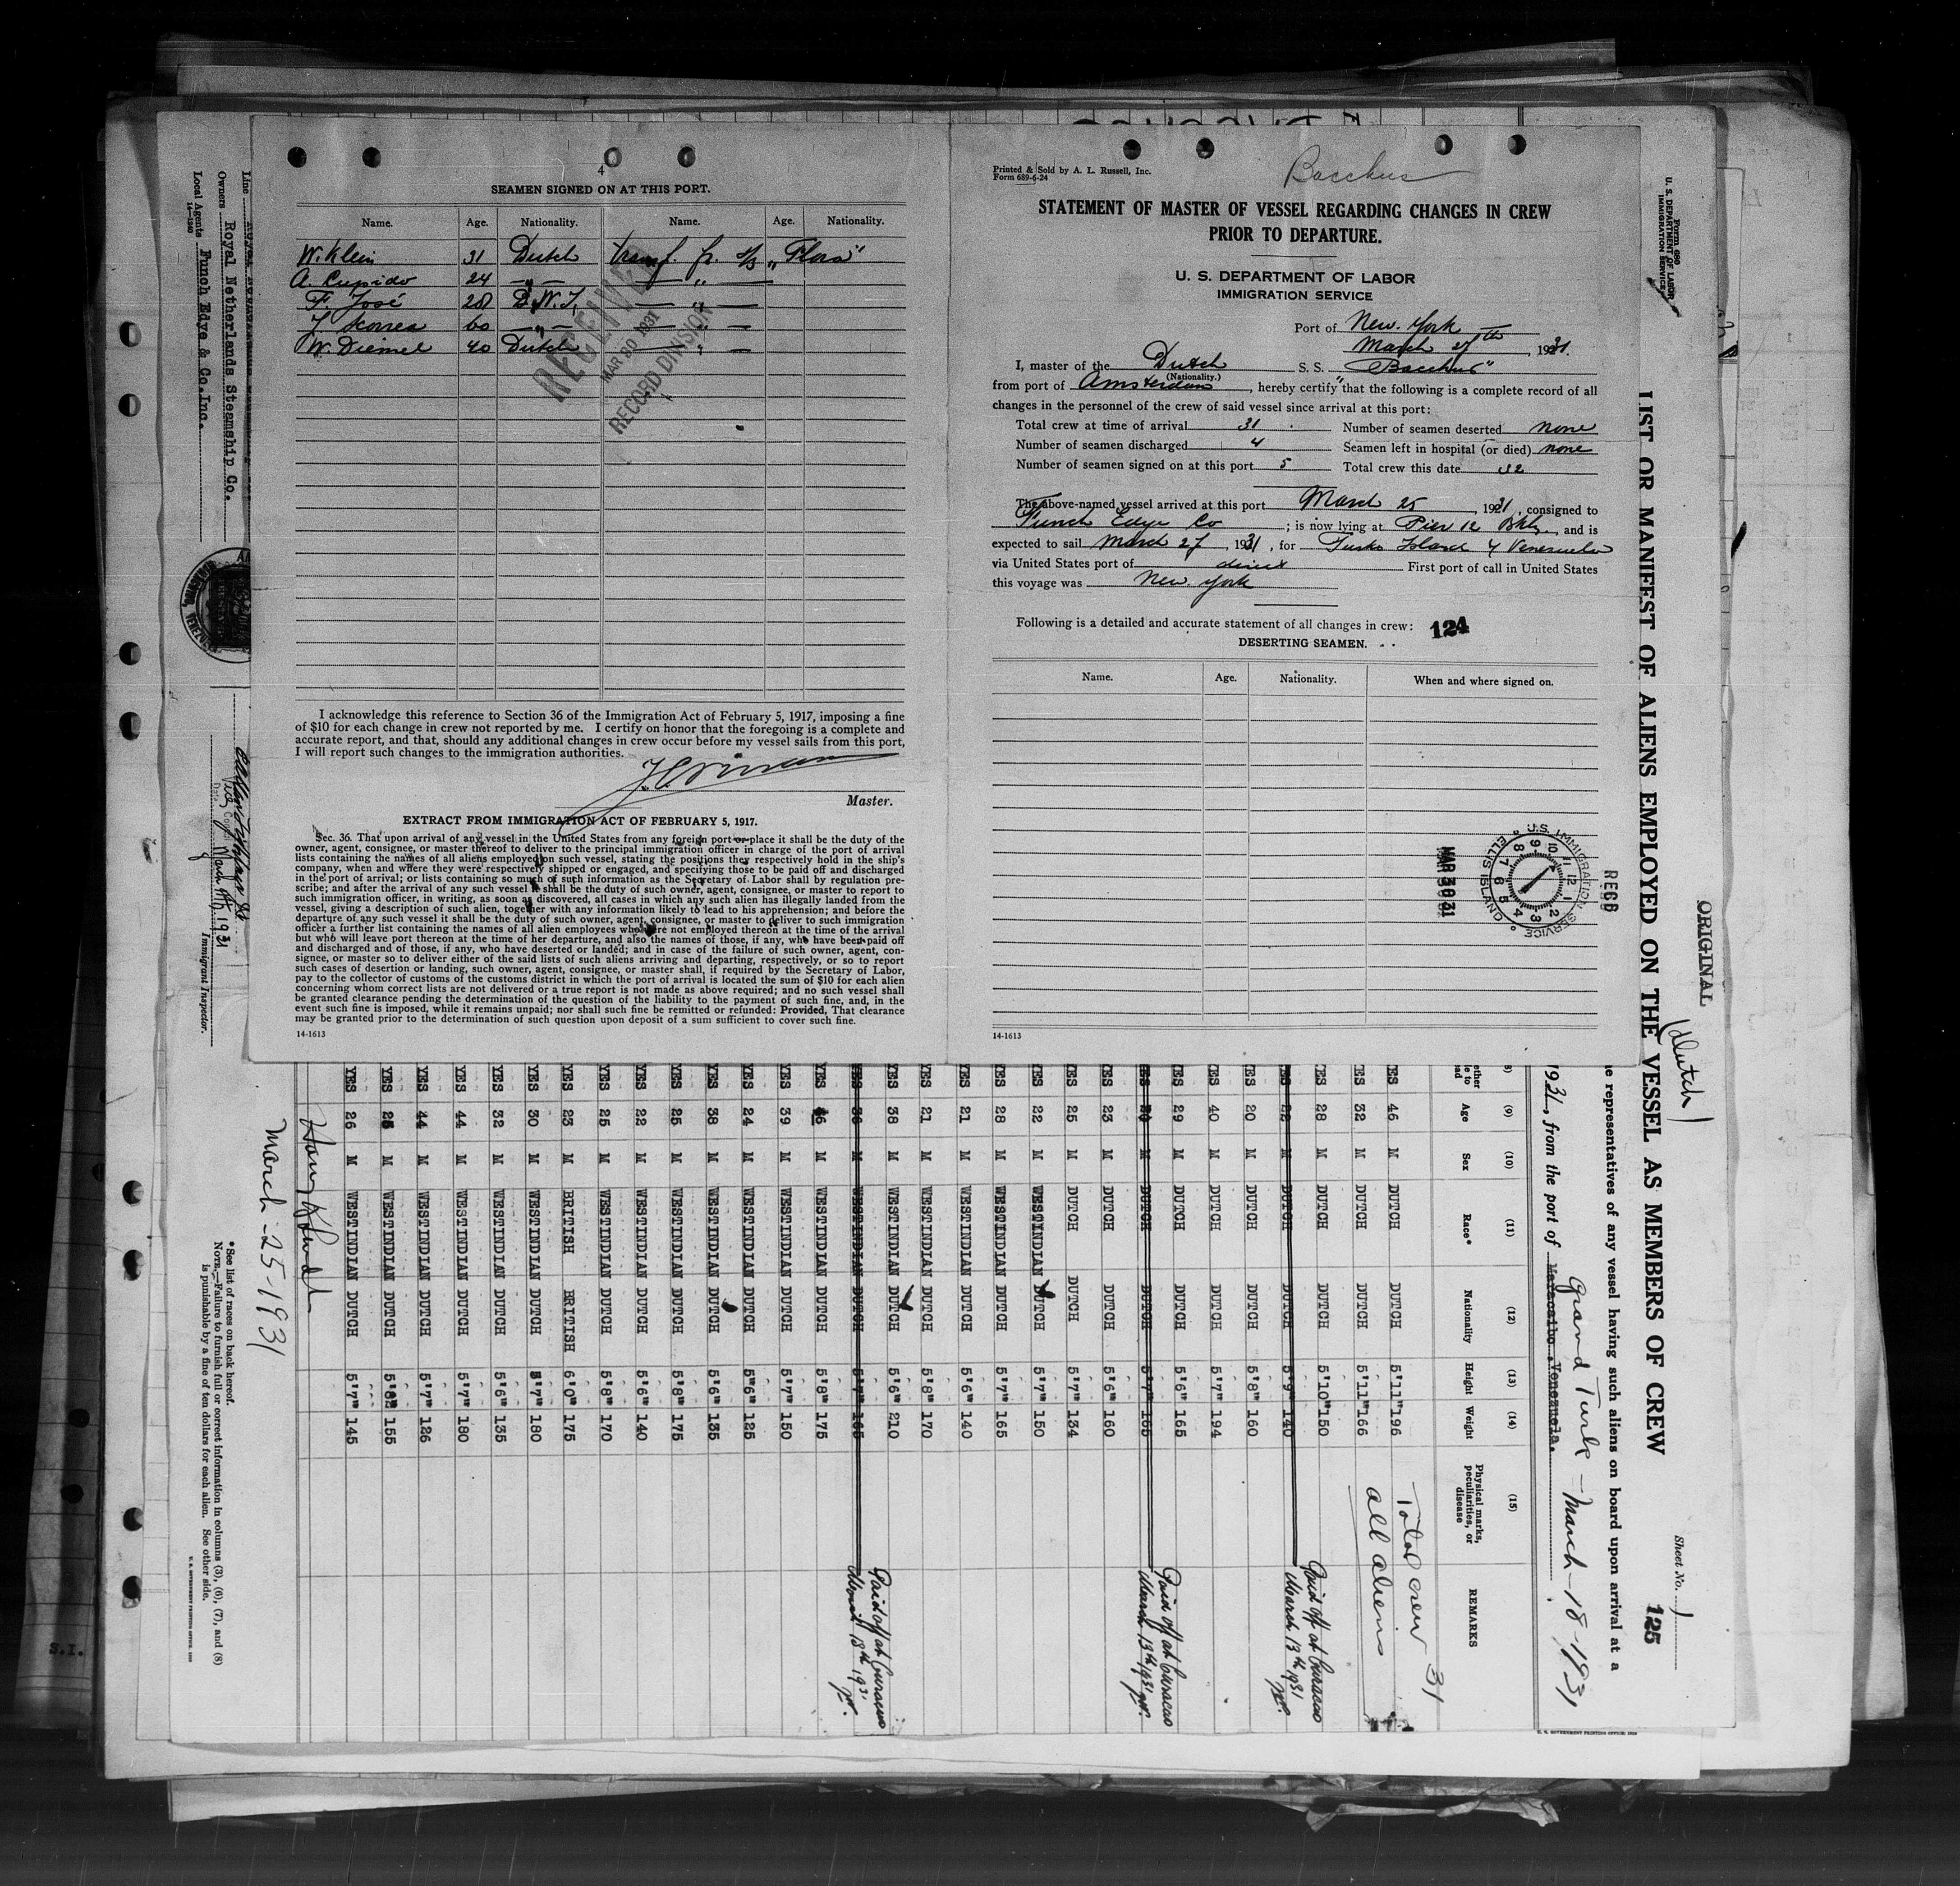 4
SEAMEN SIGNED ON AT THIS PORT.
Name. Age. Nationality. Name. Age. Nationality.
W. Klein 31 Dutch transf. fr. s/s "Flora"
A. Cupido 24 — " — — " —
F. José 28 D.W.I. — " —
60 — " — — " —
W. Diemel 40 Dutch — " —
RECEIVED
MAR 30 1931
RECORD DIVISION
I acknowledge this reference to Section 36 of the Immigration Act of February 5, 1917, imposing a fine
of $10 for each change in crew not reported by me. I certify on honor that the foregoing is a complete and
accurate report, and that, should any additional changes in crew occur before my vessel sails from this port,
I will report such changes to the immigration authorities.
Master.
EXTRACT FROM IMMIGRATION ACT OF FEBRUARY 5, 1917.
Sec. 36. That upon arrival of any vessel in the United States from any foreign port or place it shall be the duty of the
owner, agent, consignee, or master thereof to deliver to the principal immigration officer in charge of the port of arrival
lists containing the names of all aliens employed on such vessel, stating the positions they respectively hold in the ship's
company, when and where they were respectively shipped or engaged, and specifying those to be paid off and discharged
in the port of arrival; or lists containing so much of such information as the Secretary of Labor shall by regulation pre-
scribe; and after the arrival of any such vessel it shall be the duty of such owner, agent, consignee, or master to report to
such immigration officer, in writing, as soon as discovered, all cases in which any such alien has illegally landed from the
vessel, giving a description of such alien, together with any information likely to lead to his apprehension; and before the
departure of any such vessel it shall be the duty of such owner, agent, consignee, or master to deliver to such immigration
officer a further list containing the names of all alien employees who were not employed thereon at the time of the arrival
but who will leave port thereon at the time of her departure, and also the names of those, if any, who have been paid off
and discharged and of those, if any, who have deserted or landed; and in case of the failure of such owner, agent, con-
signee, or master so to deliver either of the said lists of such aliens arriving and departing, respectively, or so to report
such cases of desertion or landing, such owner, agent, consignee, or master shall, if required by the Secretary of Labor,
pay to the collector of customs of the customs district in which the port of arrival is located the sum of $10 for each alien
concerning whom correct lists are not delivered or a true report is not made as above required; and no such vessel shall
be granted clearance pending the determination of the question of the liability to the payment of such fine, and, in the
event such fine is imposed, while it remains unpaid; nor shall such fine be remitted or refunded: Provided, That clearance
may be granted prior to the determination of such question upon deposit of a sum sufficient to cover such fine.
14-1613
Printed & Sold by A. L. Russell, Inc.
Form 689-6-24
Bacchus
STATEMENT OF MASTER OF VESSEL REGARDING CHANGES IN CREW
PRIOR TO DEPARTURE.
U. S. DEPARTMENT OF LABOR
IMMIGRATION SERVICE
Port of New York
March 27th, 1931.
I, master of the Dutch S. S. "Bacchus"
(Nationality.)
from port of Amsterdam, hereby certify that the following is a complete record of all
changes in the personnel of the crew of said vessel since arrival at this port:
Total crew at time of arrival 31 Number of seamen deserted none
Number of seamen discharged 4 Seamen left in hospital (or died) none
Number of seamen signed on at this port 5 Total crew this date 32
The above-named vessel arrived at this port March 25, 1931, consigned to
Funch Edye Co; is now lying at Pier 12 Bkln, and is
expected to sail March 27, 1931, for Turks Island & Venezuela
via United States port of direct First port of call in United States
this voyage was New York
Following is a detailed and accurate statement of all changes in crew: 124
DESERTING SEAMEN.
Name. Age. Nationality. When and where signed on.
MAR 30 31
U.S. IMMIGRATION SERVICE ELLIS ISLAND
REC'D
14-1613
Line
Owners Royal Netherlands Steamship Co.
Local Agents Funch Edye & Co. Inc.
14-1240
March 1931
Immigrant Inspector.
Form 680
U. S. DEPARTMENT OF LABOR
IMMIGRATION SERVICE
ORIGINAL
(dutch)
Sheet No. 1
125
LIST OR MANIFEST OF ALIENS EMPLOYED ON THE VESSEL AS MEMBERS OF CREW
representatives of any vessel having such aliens on board upon arrival at a
1931, from the port of Maracaibo Venezuela. Grand Turk - March - 18 - 1931
(9) (10) (11) (12) (13) (14) (15)
Age Sex Race* Nationality Height Weight Physical marks, peculiarities, or disease REMARKS
YES 46 M DUTCH DUTCH 5'11" 196
YES 32 M DUTCH DUTCH 5'11" 166
YES 28 M DUTCH DUTCH 5'10" 150
YES 22 M DUTCH DUTCH 5'9" 140 Paid off at Curacao March 13th 1931
YES 20 M DUTCH DUTCH 5'8" 160
YES 40 M DUTCH DUTCH 5'7" 194
YES 29 M DUTCH DUTCH 5'6" 165
YES M DUTCH DUTCH 5'7" 165 Paid off at Curacao March 13th 1931
YES 23 M DUTCH DUTCH 5'6" 160
YES 25 M DUTCH DUTCH 5'7" 134
YES 22 M WESTINDIAN DUTCH 5'7" 150
YES 28 M WESTINDIAN DUTCH 5'7" 165
YES 21 M WESTINDIAN DUTCH 5'6" 140
YES 21 M WESTINDIAN DUTCH 5'8" 170
YES 38 M WESTINDIAN DUTCH 5'6" 210
YES 36 M WESTINDIAN DUTCH 5'7" 165 Paid off at Curacao March 13th 1931
YES 46 M WESTINDIAN DUTCH 5'8" 175
YES 39 M WESTINDIAN DUTCH 5'7" 150
YES 24 M WESTINDIAN DUTCH 5"6" 125
YES 38 M WESTINDIAN DUTCH 5'6" 135
YES 25 M WESTINDIAN DUTCH 5'8" 175
YES 22 M WESTINDIAN DUTCH 5'6" 140
YES 25 M WESTINDIAN DUTCH 5'8" 170
YES 23 M BRITISH BRITISH 6'0" 175
YES 30 M WESTINDIAN DUTCH 5'7" 180
YES 32 M WESTINDIAN DUTCH 5'6" 135
YES 44 M WESTINDIAN DUTCH 5'7" 180
YES 44 M WESTINDIAN DUTCH 5'7" 126
YES 25 M WESTINDIAN DUTCH 155
YES 26 M WESTINDIAN DUTCH 5'7" 145
Total crew 31
all aliens
March - 25 - 1931
*See list of races on back hereof.
NOTE.—Failure to furnish full or correct information in columns (3), (6), (7), and (8)
is punishable by a fine of ten dollars for each alien. See other side.
S.I.